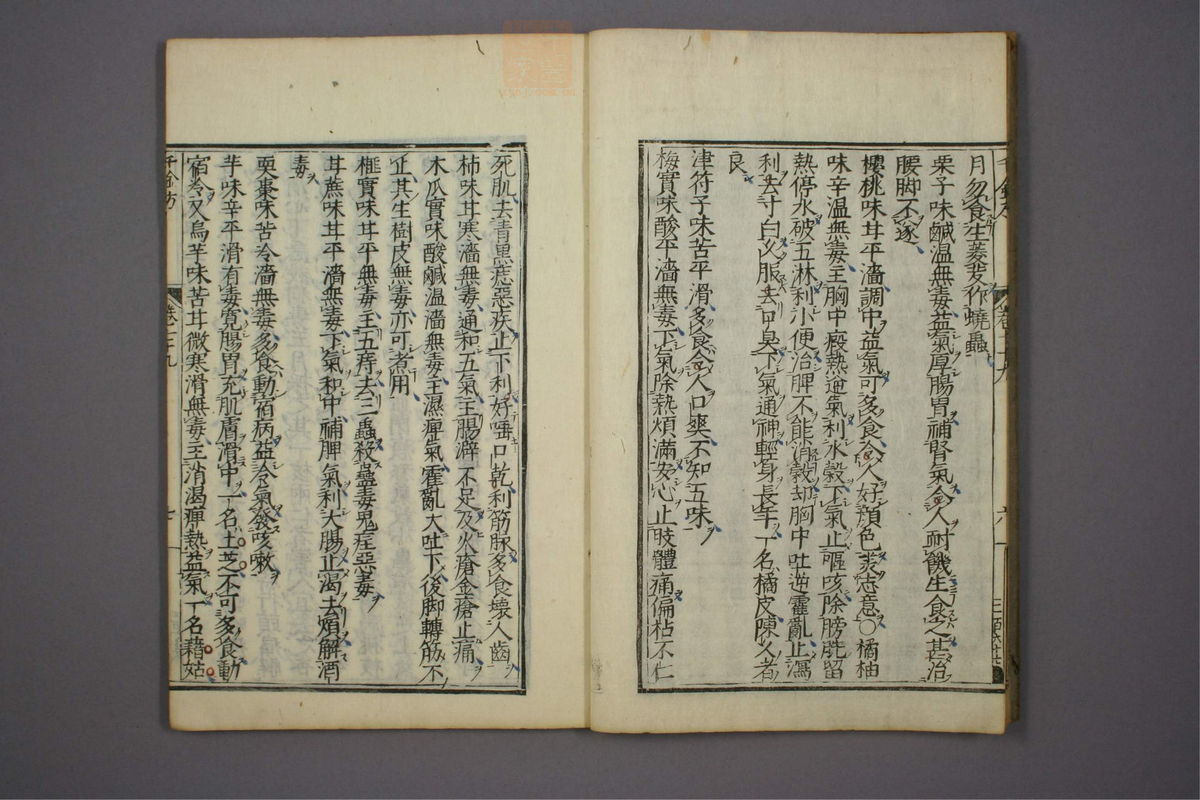 月勿食生菱芰作蟯蟲
栗子味鹹溫無毒益氣厚腸胃補腎氣令人耐饑生食之甚治
腰脚不遂
櫻桃味甘平濇調中益氣可多食令人好顏色美志意〇橘柚
味辛溫無毒主胸中瘕熱逆氣利水穀下氣止嘔咳除膀胱留
熱停水破五淋利小便治脾不能消穀却胸中吐逆霍亂止瀉
利去寸白久服去口臭下氣通神輕身長年一名橘皮陳久者
良
津符子味苦平滑多食令人口爽不知五味
梅實味酸平濇無毒下氣除熱煩滿安心止肢體痛偏枯不仁
死肌去青黑痣惡疾止下利好唾口乾利筋脉多食壞人齒
柿味甘寒濇無毒通和五氣主腸澼不足及火瘡金瘡止痛
木瓜實味酸鹹溫濇無毒主濕痺氣霍亂大吐下後脚轉筋不
止其生樹皮無毒亦可煮用
榧實味甘平無毒主五痔去三蟲殺蠱毒鬼疰惡毒
甘蔗味甘平濇無毒下氣和中補脾氣利大腸止渴去煩解酒
毒
耎棗味苦冷濇無毒多食動宿病益冷氣發咳嗽
芋味辛平滑有毒寬腸胃充肌膚滑中一名土芝不可多食動
宿冷又烏芋味苦甘微寒滑無毒主消渴痺熱益氣一名藉姑
千金方 卷二十九 七